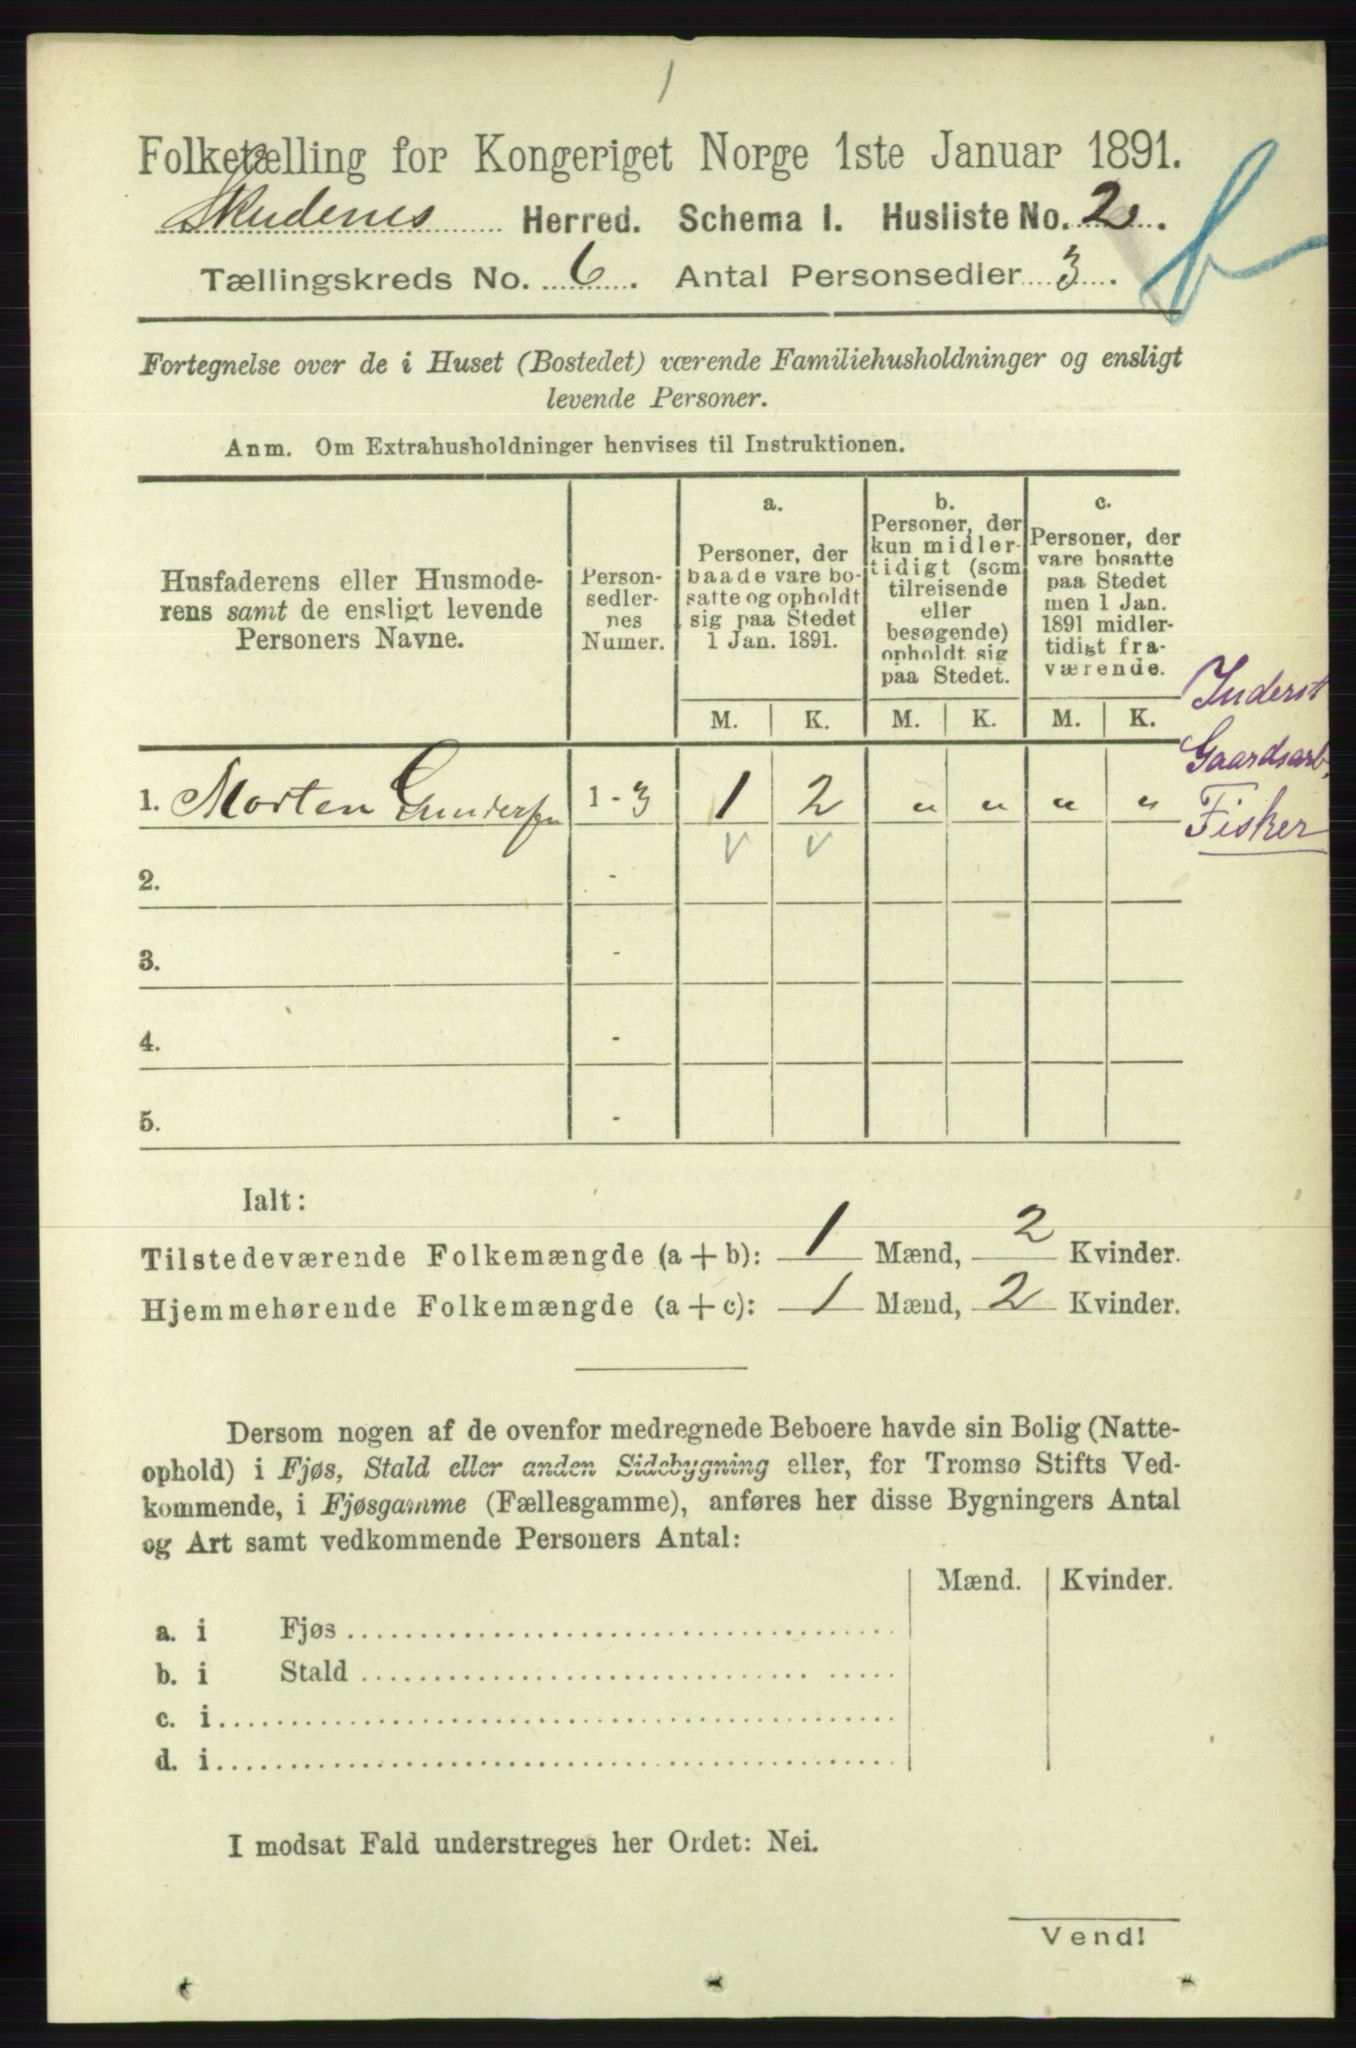 1
Folketælling for Kongeriget Norge 1ste Januar 1891.
Skudenes Herred. Schema I. Husliste No. 2.
Tællingskreds No. 6. Antal Personsedler 3.
Fortegnelse over de i Huset (Bostedet) værende Familiehusholdninger og ensligt
levende Personer.
Anm. Om Extrahusholdninger henvises til Instruktionen.
Husfaderens eller Husmode-
rens samt de ensligt levende
Personers Navne.
Person-
sedler-
nes
Numer.
a.
Personer, der
baade vare bo-
satte og opholdt
sig paa Stedet
1 Jan. 1891.
b.
Personer, der
kun midler-
tidigt (som
tilreisende
eller
besøgende)
opholdt sig
paa Stedet.
c.
Personer, der
vare bosatte
paa Stedet
men 1 Jan.
1891 midler-
tidigt fra-
værende.
M. K. M. K. M. K.
Inderst
Gaardsarb.
Fisker
1. Morten Gundersen 1 - 3 1 2 " " " "
v v
2. -
3. -
4. -
5. -
Ialt:
Tilstedeværende Folkemængde (a + b): 1 Mænd, 2 Kvinder.
Hjemmehørende Folkemængde (a + c): 1 Mænd, 2 Kvinder.
Dersom nogen af de ovenfor medregnede Beboere havde sin Bolig (Natte-
ophold) i Fjøs, Stald eller anden Sidebygning eller, for Tromsø Stifts Ved-
kommende, i Fjøsgamme (Fællesgamme), anføres her disse Bygningers Antal
og Art samt vedkommende Personers Antal:
Mænd. Kvinder.
a. i Fjøs
b. i Stald
c. i
d. i
I modsat Fald understreges her Ordet: Nei.
Vend!